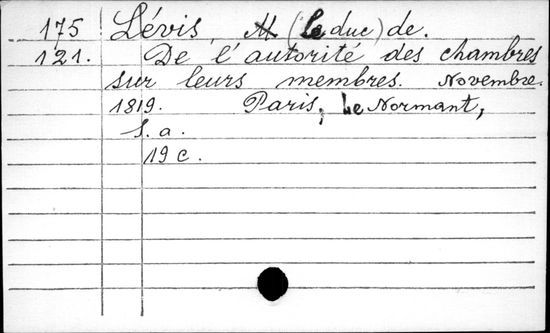 175 Lévis, M (le duc) de.
121. De l'autorité des chambres
sur leurs membres. Novembre.
1819. Paris, Le Normant,
S. a.
19 c.